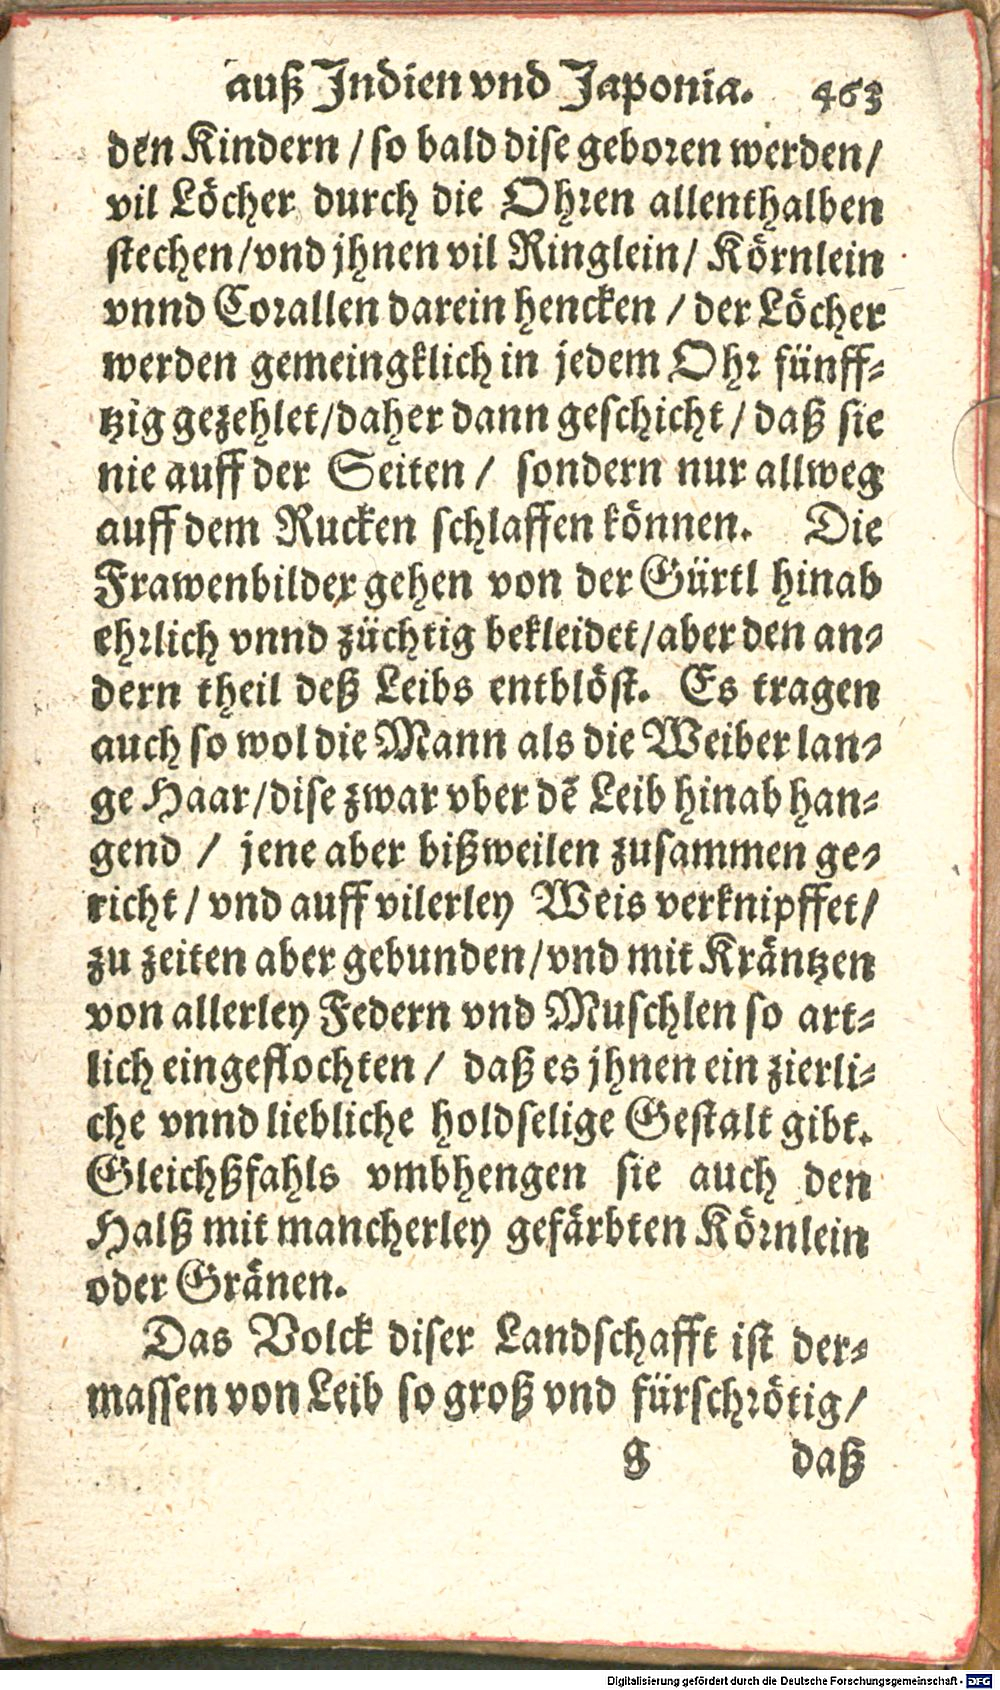 auß Indien vnd Japonia. 463
den Kindern / so bald dise geboren werden/
vil Löcher durch die Ohren allenthalben
stechen/vnd jhnen vil Ringlein/ Körnlein
vnnd Corallen darein hencken / der Löcher
werden gemeingklich in jedem Ohr fünff-
tzig gezehlet/daher dann geschicht / daß sie
nie auff der Seiten / sondern nur allweg
auff dem Rucken schlaffen können. Die
Frawenbilder gehen von der Gürtl hinab
ehrlich vnnd züchtig bekleidet/aber den an-
dern theil deß Leibs entblöst. Es tragen
auch so wol die Mann als die Weiber lan-
ge Haar/dise zwar vber dē Leib hinab han-
gend / jene aber bißweilen zusammen ge-
richt / vnd auff vilerley Weis verknipffet/
zu zeiten aber gebunden/vnd mit Kräntzen
von allerley Federn vnd Muschlen so art-
lich eingeflochten / daß es jhnen ein zierli-
che vnnd liebliche holdselige Gestalt gibt.
Gleichßfahls vmbhengen sie auch den
Halß mit mancherley gefärbten Körnlein
oder Gränen.
Das Volck diser Landschafft ist der-
massen von Leib so groß vnd fürschrötig/
g daß
Digitalisierung gefördert durch die Deutsche Forschungsgemeinschaft - DFG